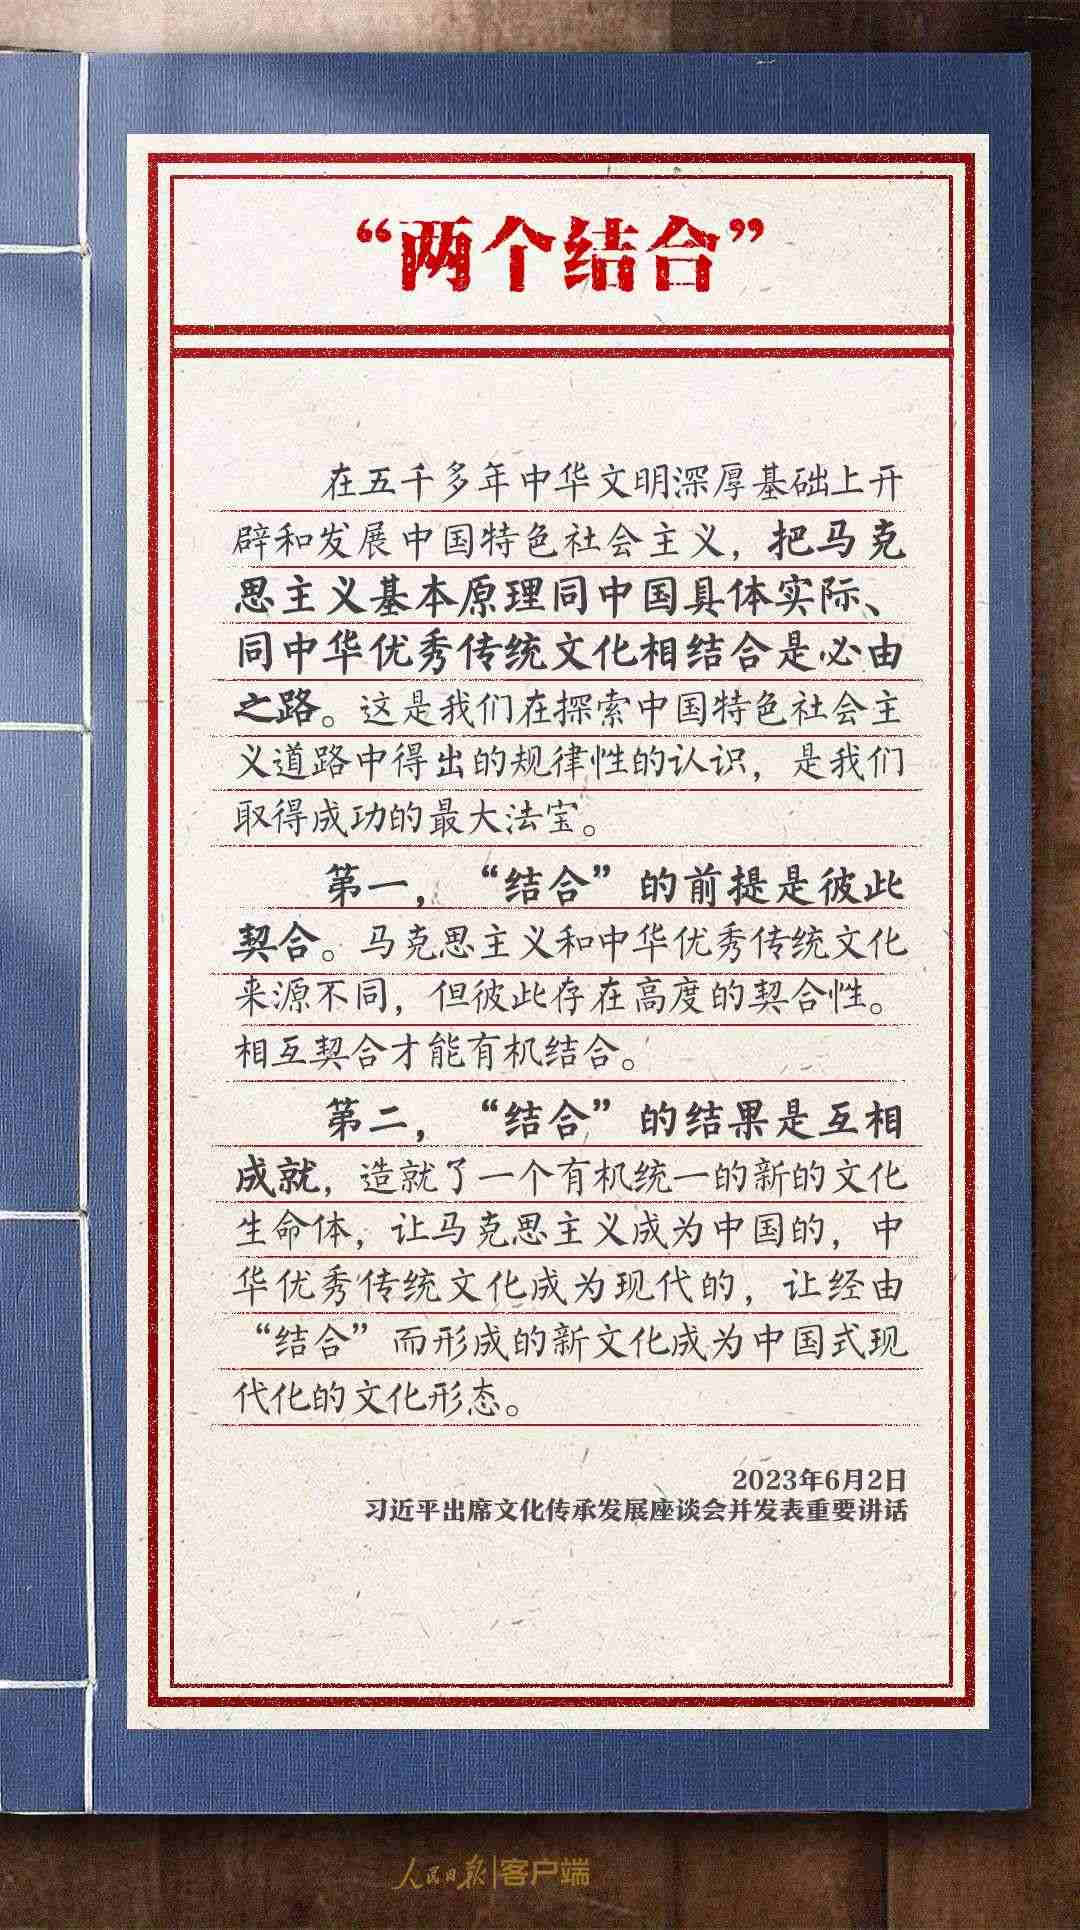 “两个结合”
在五千多年中华文明深厚基础上开
辟和发展中国特色社会主义，把马克
思主义基本原理同中国具体实际、
同中华优秀传统文化相结合是必由
之路。这是我们在探索中国特色社会主
义道路中得出的规律性的认识，是我们
取得成功的最大法宝。
第一，“结合”的前提是彼此
契合。马克思主义和中华优秀传统文化
来源不同，但彼此存在高度的契合性。
相互契合才能有机结合。
第二，“结合”的结果是互相
成就，造就了一个有机统一的新的文化
生命体，让马克思主义成为中国的，中
华优秀传统文化成为现代的，让经由
“结合”而形成的新文化成为中国式现
代化的文化形态。
2023年6月2日
习近平出席文化传承发展座谈会并发表重要讲话
人民日报|客户端